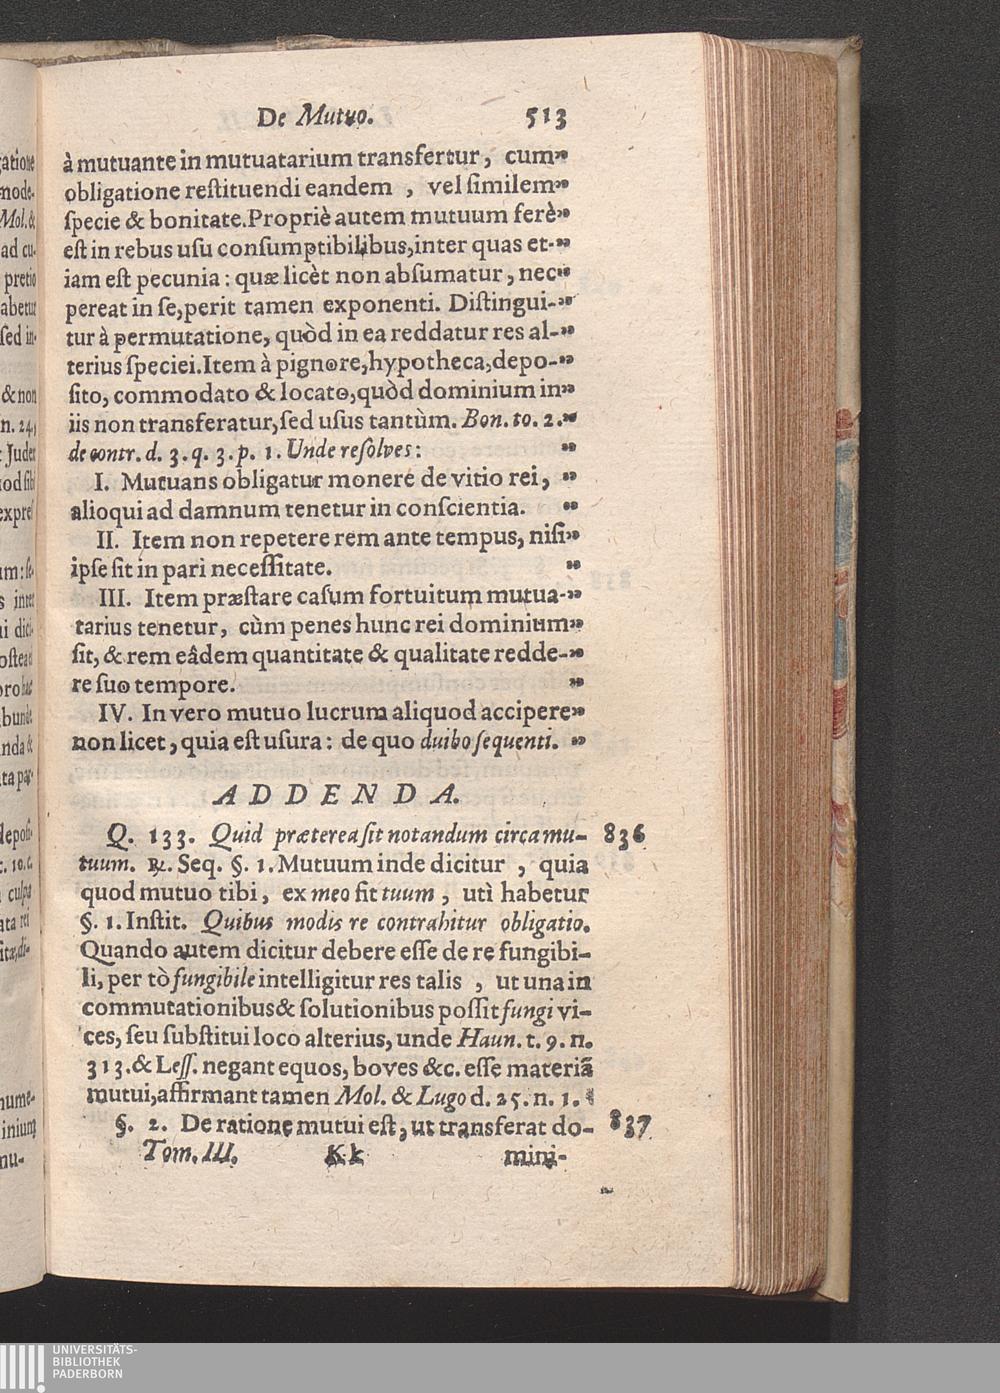 De Mutuo. 513
à mutuante in mutuatarium transfertur, cum„
obligatione reſtituendi eandem, vel ſimilem„
ſpecie & bonitate. Propriè autem mutuum ferè„
eſt in rebus uſu conſumptibilibus, inter quas et-„
iam eſt pecunia: quæ licèt non abſumatur, nec„
pereat in ſe, perit tamen exponenti. Diſtingui-„
tur à permutatione, quòd in ea reddatur res al-„
terius ſpeciei. Item à pignore, hypotheca, depo-„
ſito, commodato & locato, quòd dominium in„
iis non transferatur, ſed uſus tantùm. Bon. to. 2.„
de contr. d. 3. q. 3. p. 1. Unde reſolves: „
I. Mutuans obligatur monere de vitio rei, „
alioqui ad damnum tenetur in conſcientia. „
II. Item non repetere rem ante tempus, niſi„
ipſe ſit in pari neceſſitate. „
III. Item præſtare caſum fortuitum mutua-„
tarius tenetur, cùm penes hunc rei dominium„
ſit, & rem eâdem quantitate & qualitate redde-„
re ſuo tempore. „
IV. In vero mutuo lucrum aliquod accipere„
non licet, quia eſt uſura: de quo duibo ſequenti. „
ADDENDA.
Q. 133. Quid præterea ſit notandum circa mu- 836
tuum. ℞. Seq. §. 1. Mutuum inde dicitur, quia
quod mutuo tibi, ex meo fit tuum, utì habetur
§. 1. Inſtit. Quibus modis re contrahitur obligatio.
Quando autem dicitur debere eſſe de re fungibi-
li, per tò fungibile intelligitur res talis, ut una in
commutationibus & ſolutionibus poſſit fungi vi-
ces, ſeu ſubſtitui loco alterius, unde Haun. t. 9. n.
313. & Leſſ. negant equos, boves &c. eſſe materiã
mutui, affirmant tamen Mol. & Lugo d. 25. n. 1.
§. 2. De ratione mutui eſt, ut transferat do- 837
Tom. III. Kk mini-
UNIVERSITÄTS-
BIBLIOTHEK
PADERBORN